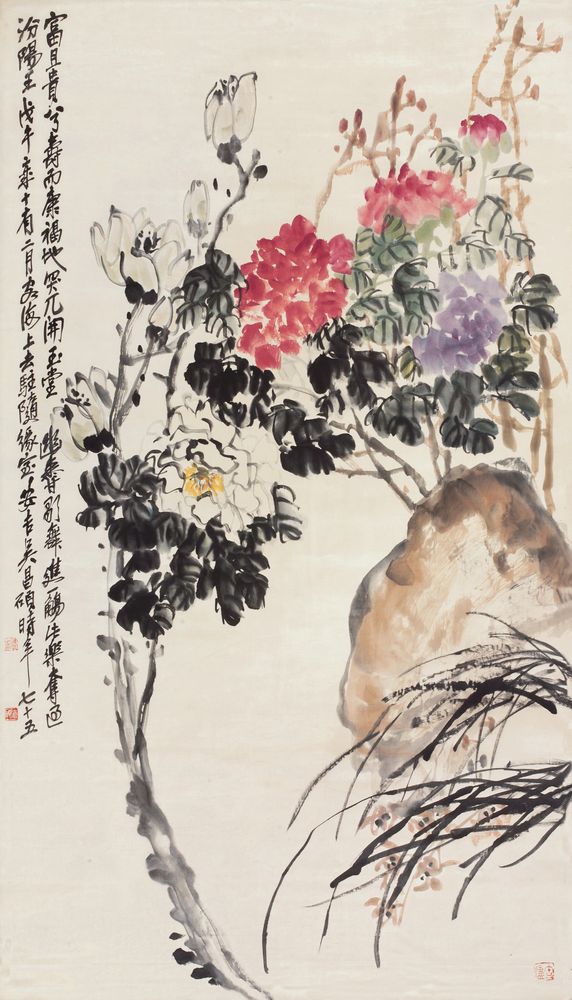 富且貴兮壽而康福地突兀開玉堂 舞進觴此樂奪過
汾陽王 戊午秊十有二月客海上去駐隨緣室 安吉吳昌碩時年七十五